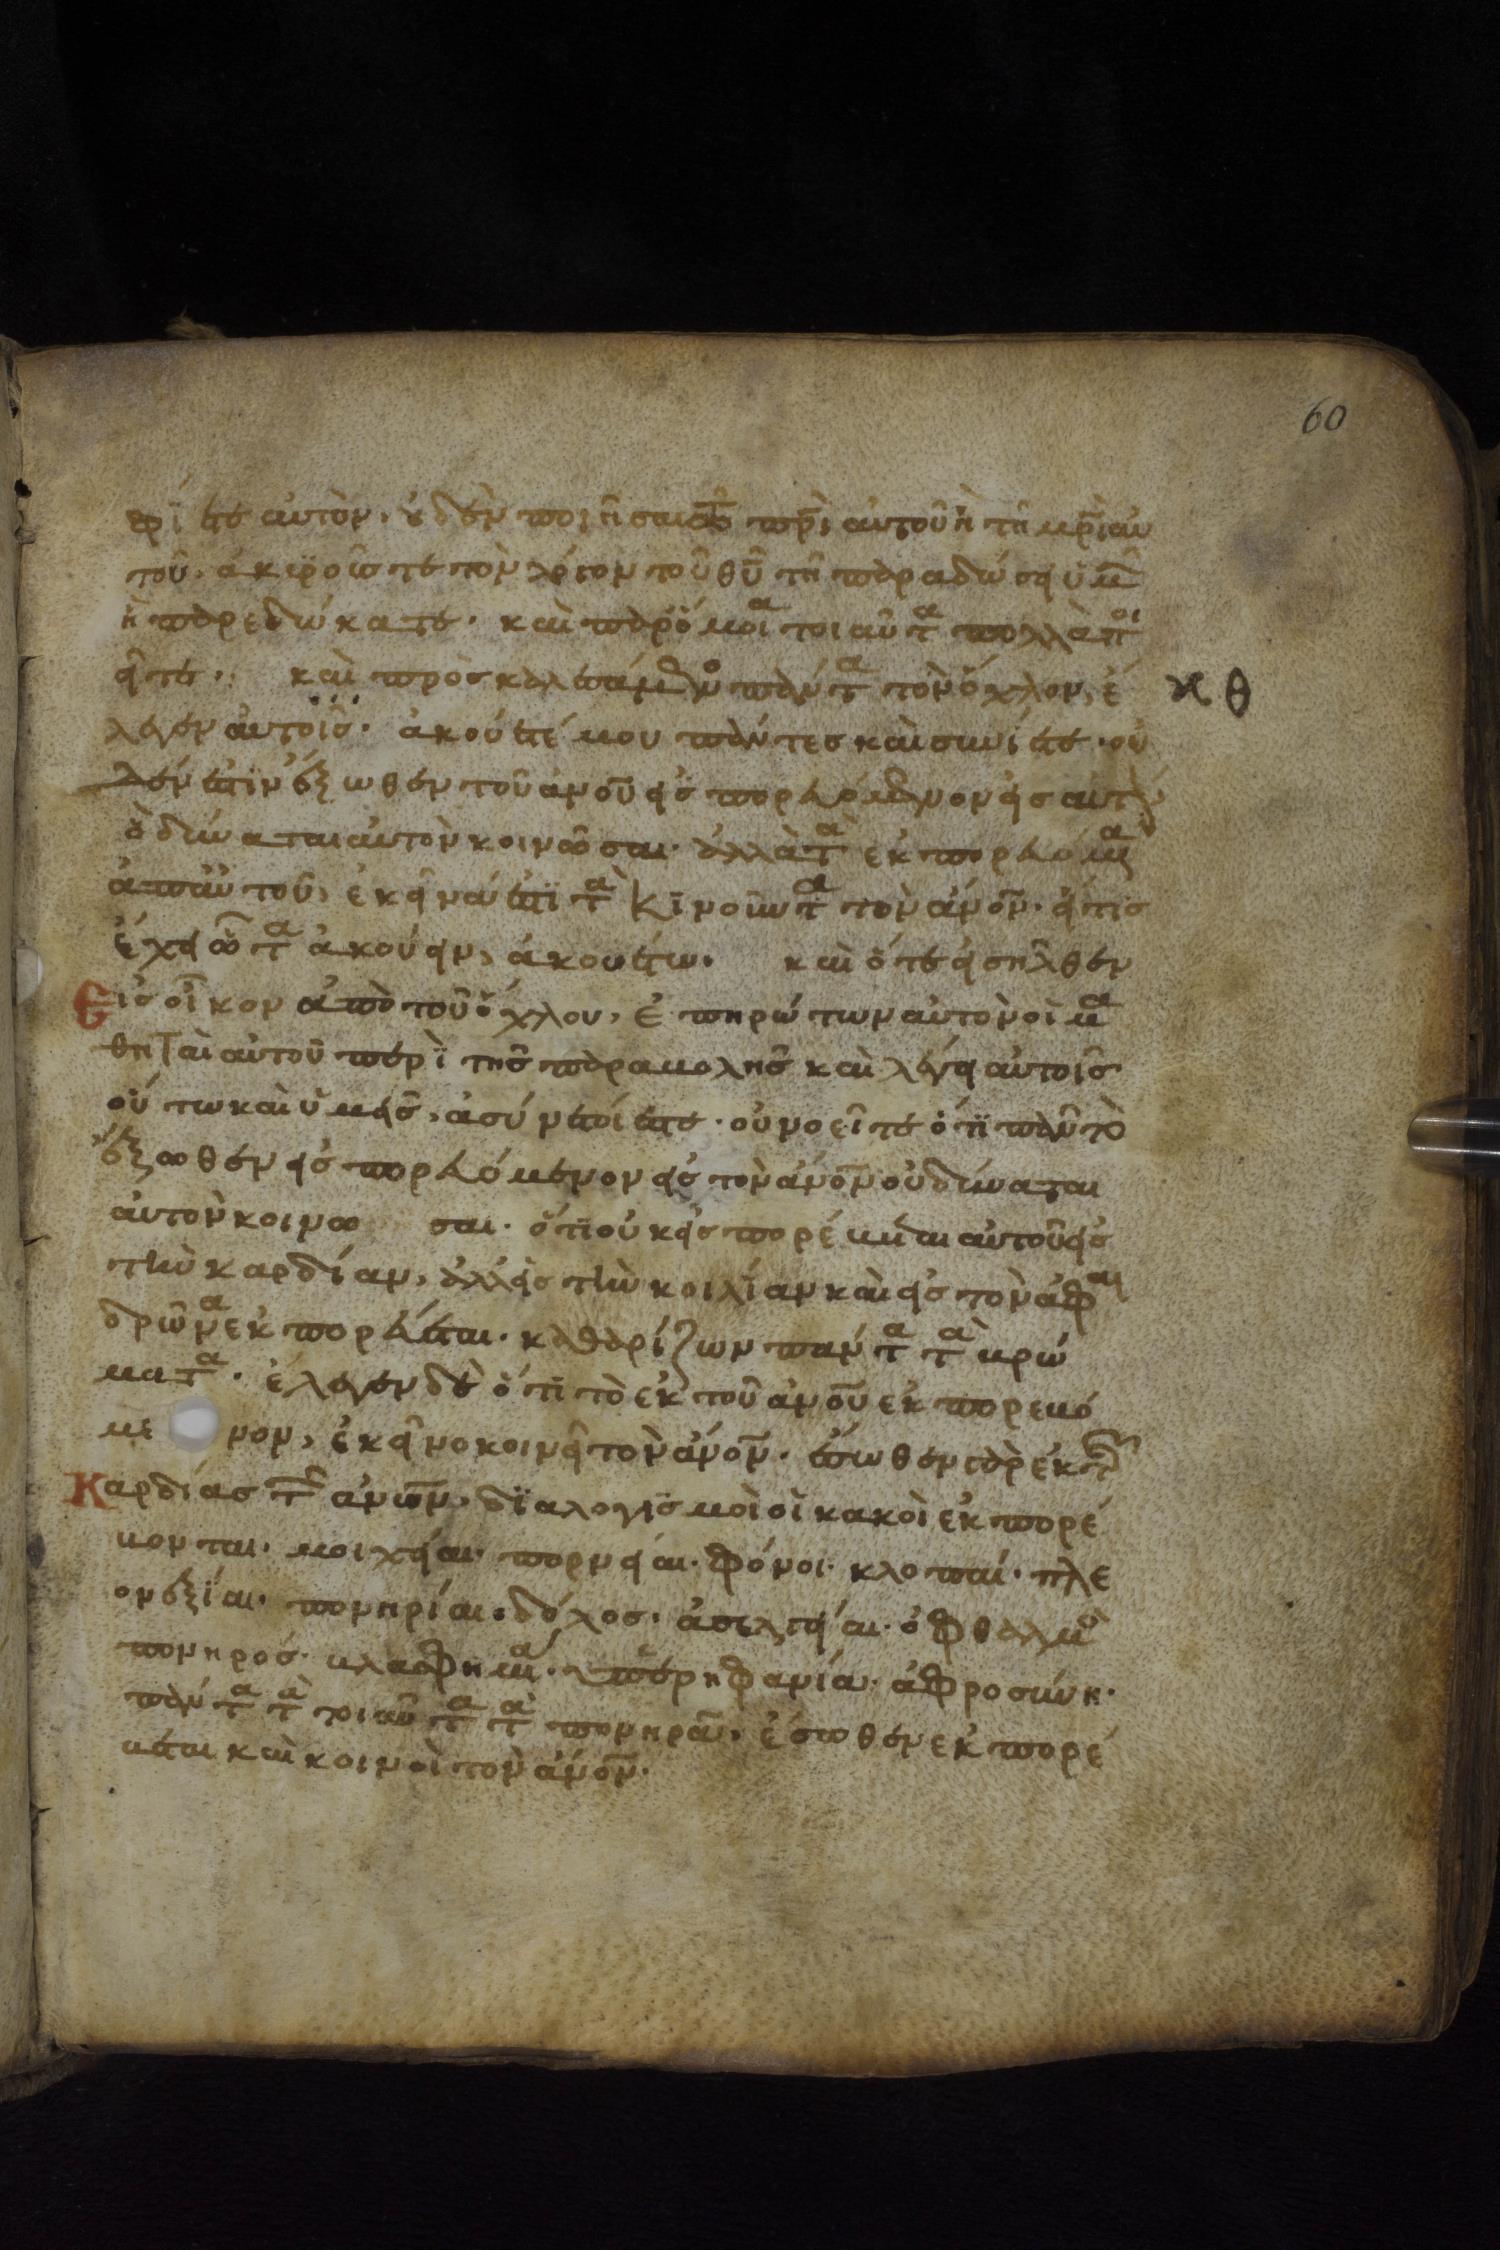 60
φίεται αὐτὸν, οὐδὲν ποιῆσαι τῷ πρὶ αὐτοῦ ἢ τῆ μρὶ αὐ
τοῦ, ἀκυροῦντες τὸν λόγον τοῦ θῦ τῆ παραδώσει ὑμῶ
ἢ παρεδώκατε· καὶ παρόμοια τοιαῦτα πολλὰ ποι
εῖτε· καὶ πρὸσκαλεσάμενος πάντα τὸν ὄχλον, ἔ
λεγεν αὐτοῖς· ἀκούετέ μου πάντες καὶ συνίετε· οὐ
κθ
δέν ἐστϊν ἔξωθεν τοῦ ἀνοῦ εἰσπορευόμενον εἰς αὐτὸν
ὃ δύναται αὐτὸν κοινῶσαι· ἀλλὰ τὰ ἐκπορευόμενα
ἀπ αὐτοῦ, ἐκεῖνά ἐστϊ τὰ κϊνοῦντα τὸν ἄνον· εἴ τις
ἔχει ὦτα ἀκούειν, ἀκουέτω· καὶ ὅτε εἰσῆλθεν
Εἰς οἶκον ἀπὸ τοῦ ὄχλου, ἐπηρώτων αὐτὸν οἱ μα
θηταὶ αὐτοῦ περὶ τῆς παραβολῆς καὶ λέγει αὐτοῖς·
οὕτω καὶ ὑμεῖς, ἀσύνετοί ἐστε· οὐ νοεῖτε ὅτϊ πᾶν τὸ
ἔξωθεν εἰσπορευόμενον εἰς τὸν ἄνον οὐ δύναται
αὐτὸν κοινω σαι· ὅτϊ οὐκ εἰσπορεύεται αὐτοῦ εἰς
τὴν καρδίαν, ἀλλ εἰς τὴν κοιλίαν καὶ εἰς τὸν ἀφ
δρῶνα ἐκπορεύεται· καθαρίζων πάντα τὰ βρώ
ματα· ἔλεγεν δὲ ὅτϊ τὸ ἐκ τοῦ ἀνοῦ ἐκπορευό
με νον, ἐκεῖνο κοινεῖ τὸν ἄνον· ἔσωθεν γὰρ ἐκ τῆς
Καρδίας τῶν ἀνων, δϊαλογϊσμοὶ οἱ κακοὶ ἐκπορέ
υονται· μοιχεῖαι· πορνεῖαι· φόνοι· κλοπαί· πλε
ονεξίαι· πονηρίαι· δόλος· ἀσελγεῖαι· ὀφθαλμὸ
πονηρός· βλασφημία· ὑπερηφανία· ἀφροσύνη·
πάντα τὰ τοιαῦτα τὰ πονηρὰ, ἔσωθεν ἐκπορέ
υεται καὶ κοινοὶ τὸν ἄνον·